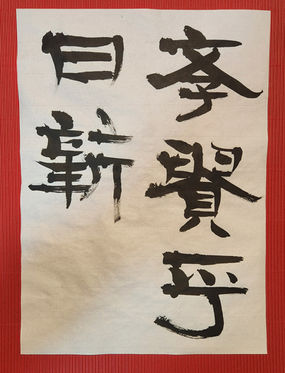 賢乎
日新